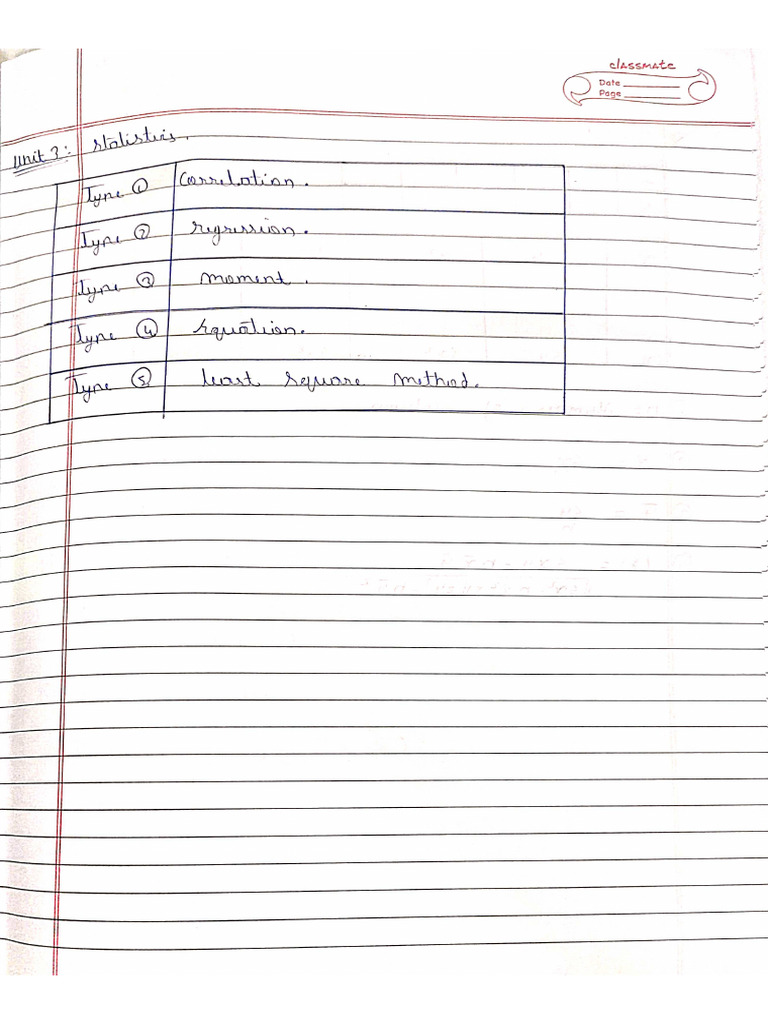 classmate
Date
Page
Unit 3: Statistics.
Type ① Correlation.
Type ② regression.
Type ③ moment.
Type ④ Equation.
Type ⑤ least square method.